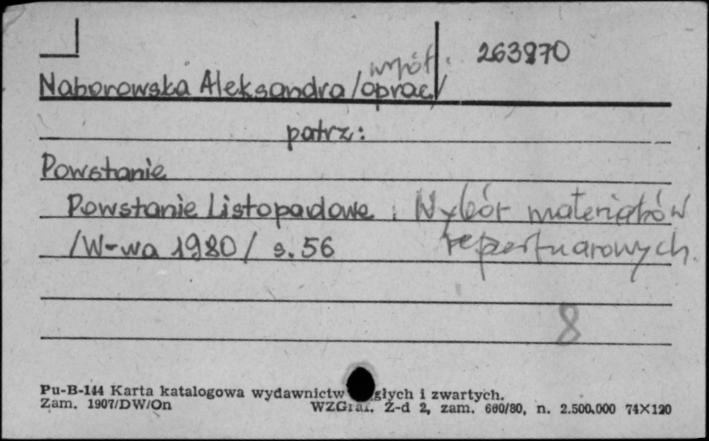 263870
współ.
Naborowska Aleksandra /oprac/
patrz:
Powstanie
Powstanie Listopadowe. Wybór materiałów
/W-wa 1980/ s. 56 repertuarowych.
8
Pu-B-144 Karta katalogowa wydawnictw głych i zwartych.
Zam. 1907/DW/On WZGraf. Z-d 2, zam. 660/80, n. 2.500.000 74×120